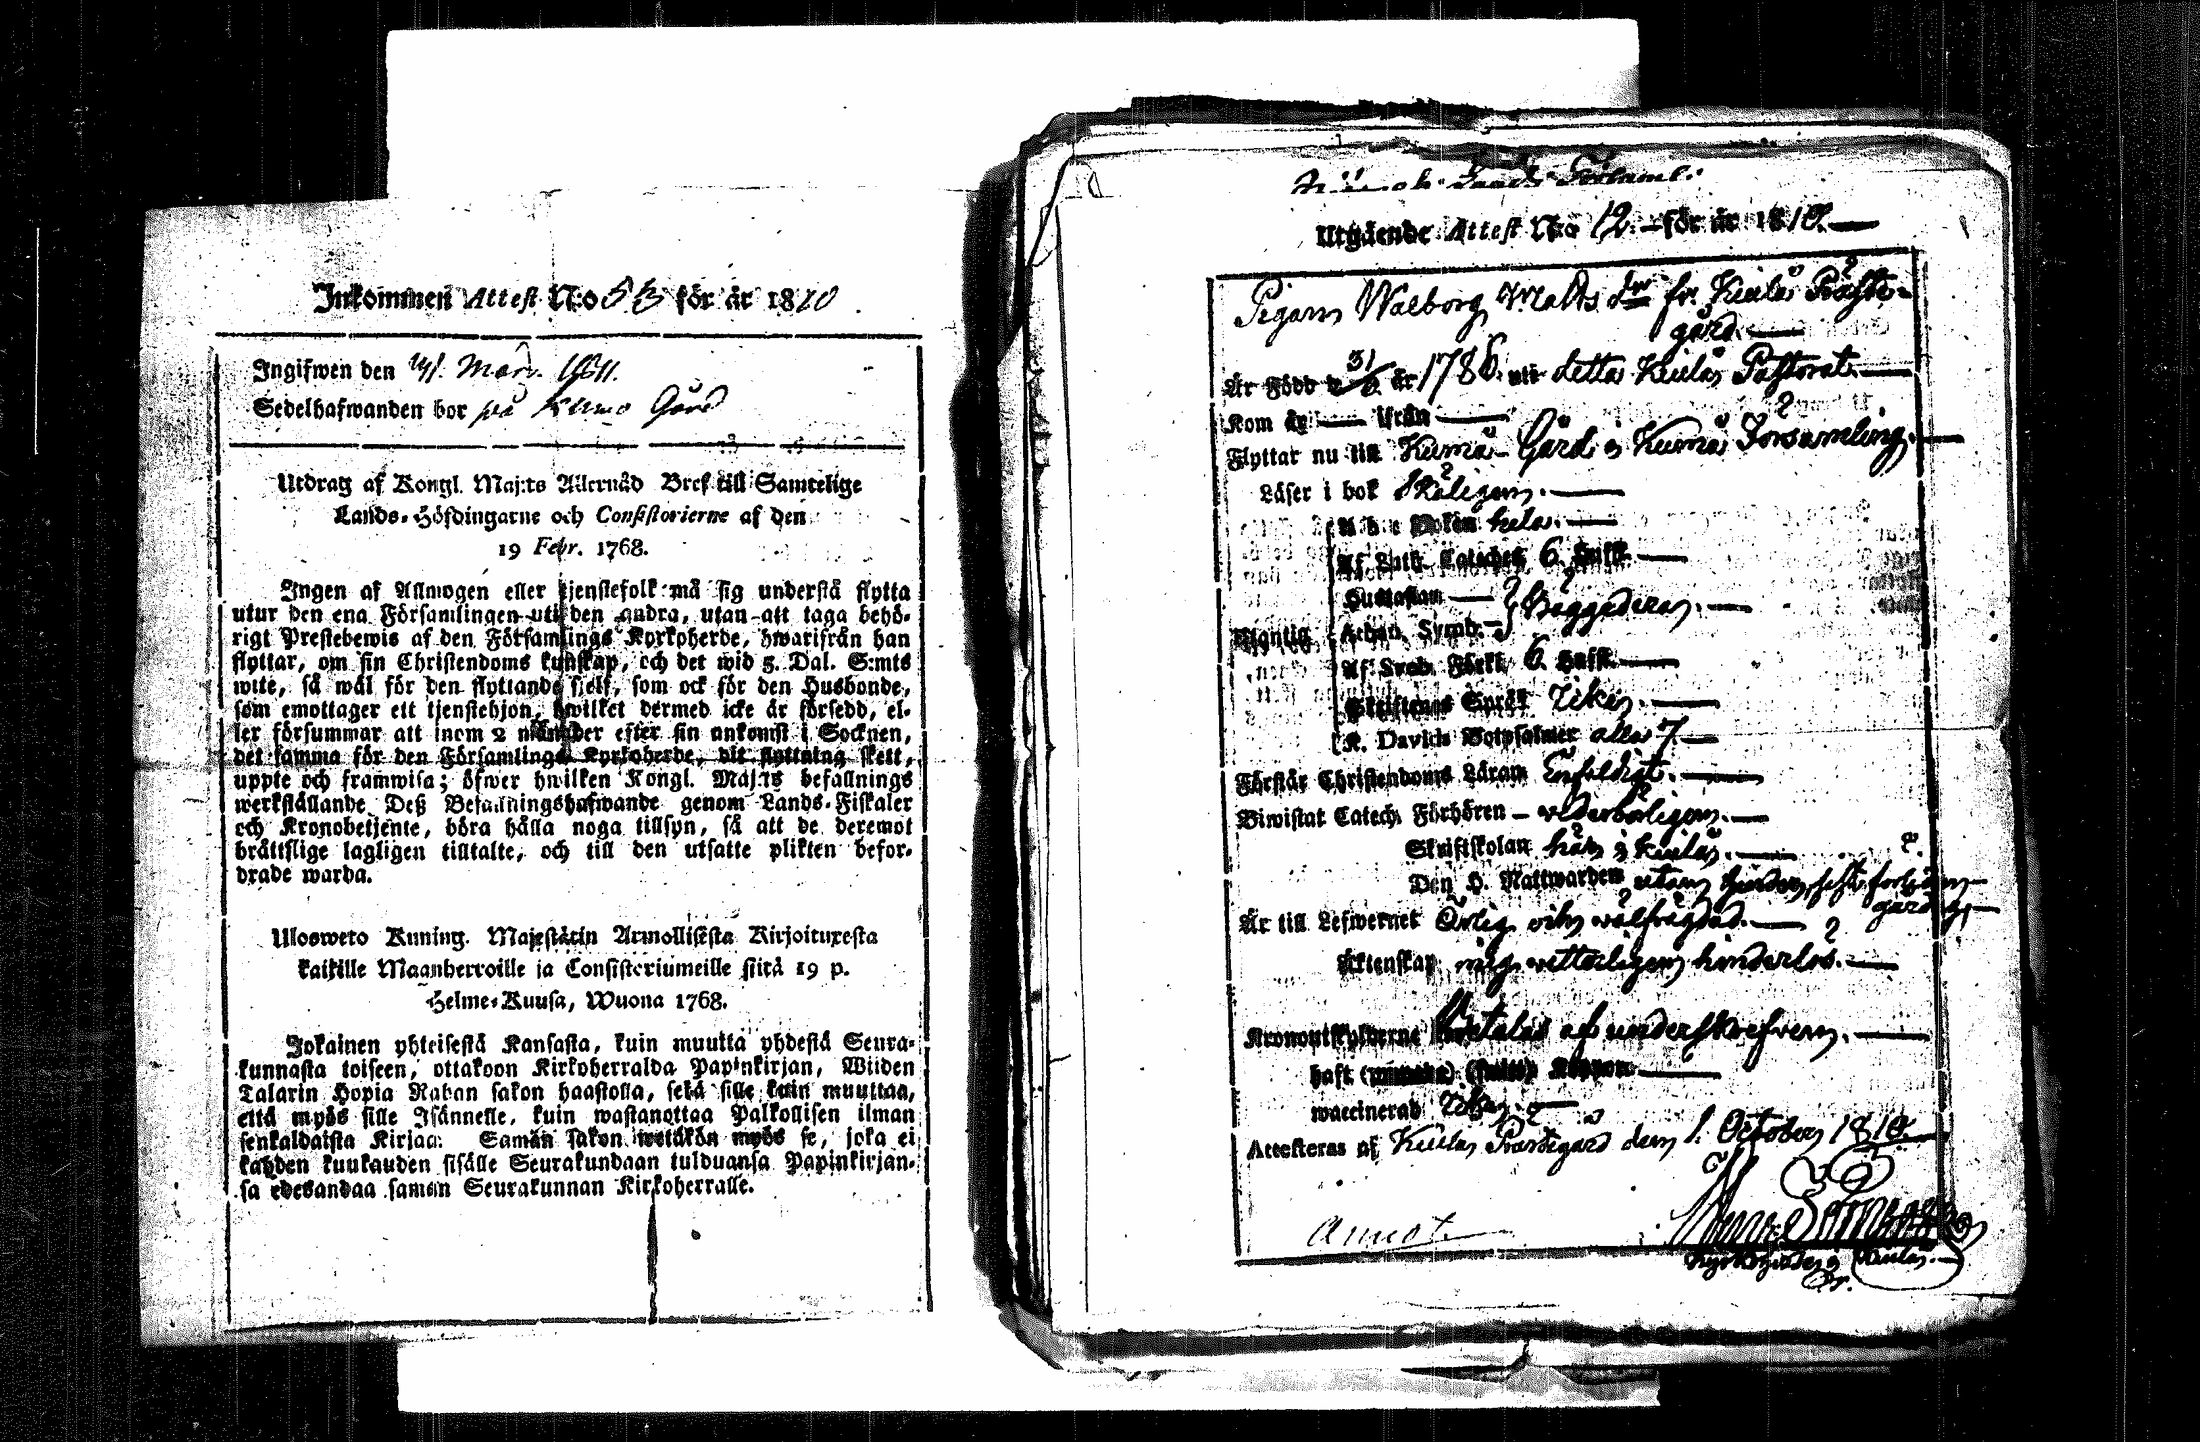 Inkommen Attest N:o 53 för år 1810
Ingifwen den Mars. 1811.
Sedelhafwanden bor på Kumo Gård
Utdrag af Kongl. Maj:ts Allernåd Bref till Samtelige
Lands-Höfdingarne och Consistorierne af den
19 Febr. 1768.
Ingen af Allmogen eller tjenstefolk må sig understå flytta
utur den ena Församlingen uti den andra, utan att taga behö-
rigt Prestebewis af den Församlings Kyrkoherde, hwarifrån han
flyttar, om sin Christendoms kunskap, och det wid 5. Dal. S:mts
wite, så wäl för den flyttande sjelf, som ock för den Husbonde,
som emottager ett tjenstehjon, hwilket dermed icke är försedd, el-
ler försummar att inom 2 månader efter sin ankomst i Socknen,
det samma för den Församlings Kyrkoherde, dit flyttning skett,
uppte och framwisa; öfwer hwilken Kongl. Maj:ts befallnings
werkställande Deß Befallningshafwande genom Lands-Fiskaler
och Kronobetjente, böra hålla noga tillsyn, så att de deremot
bråttslige lagligen tilltalte, och till den utsatte plikten befor-
drade warda.
Ulosweto Kuning. Majestätin Armollisesta Kirjoituxesta
kaikille Maanherroille ja Consistoriumeille siitä 19 p.
Helme-Kuusa, Wuona 1768.
Jokainen yhteisestä Kansasta, kuin muutta yhdestä Seura-
kunnasta toiseen, ottakoon Kirkoherralda Papinkirjan, Wiiden
Talarin Hopia Rahan sakon haastolla, sekä sille kuin muuttaa,
että myös sille Isännelle, kuin wastanottaa Palkollisen ilman
senkaldaista Kirjaa: Samän sakon wetäkön myös se, joka ei
kahden kuukauden sisälle Seurakundaan tulduansa Papinkirjan-
sa edesandaa saman Seurakunnan Kirkoherralle.
Utgående Attest N:o 12. för år 1810.
Pigan Walborg Matts dr fr. Kiulo Präste-
gård.
Är Född d 31/ år 1786. uti detta Kiulo Pastorat.
Kom år ifrån
Flyttar nu till Kumo Gård i Kumo Församling.
Läser i bok Skäligen.
A b c Boken hela.
Af Luth. Cateches 6. Huft.
Hustaflan
Athan. Symb. Beggedera.
Mantig
Af Sveb. Förkl. 6. Huft.
Skriftenes Språk
K. Davids Botpsalmer alla 7.
Förstår Christendoms Läran Enfaldigt.
Biwistat Catech. Förhören - wederbörligen.
Skriftskolan här i Kiulo.
Den H. Nattwarden utan hinder
Är till Lefwernet Ärlig och wälfrägdad.
Äktenskap mig wetterligen hinderlös.
Kronoutskylderne betalas af underskrefven.
haft Koppor
waccinerad
Attesteras af Kiulo Prästegård den 1. October 1810.
Annot.
Kyrkoherde i Kiulo.